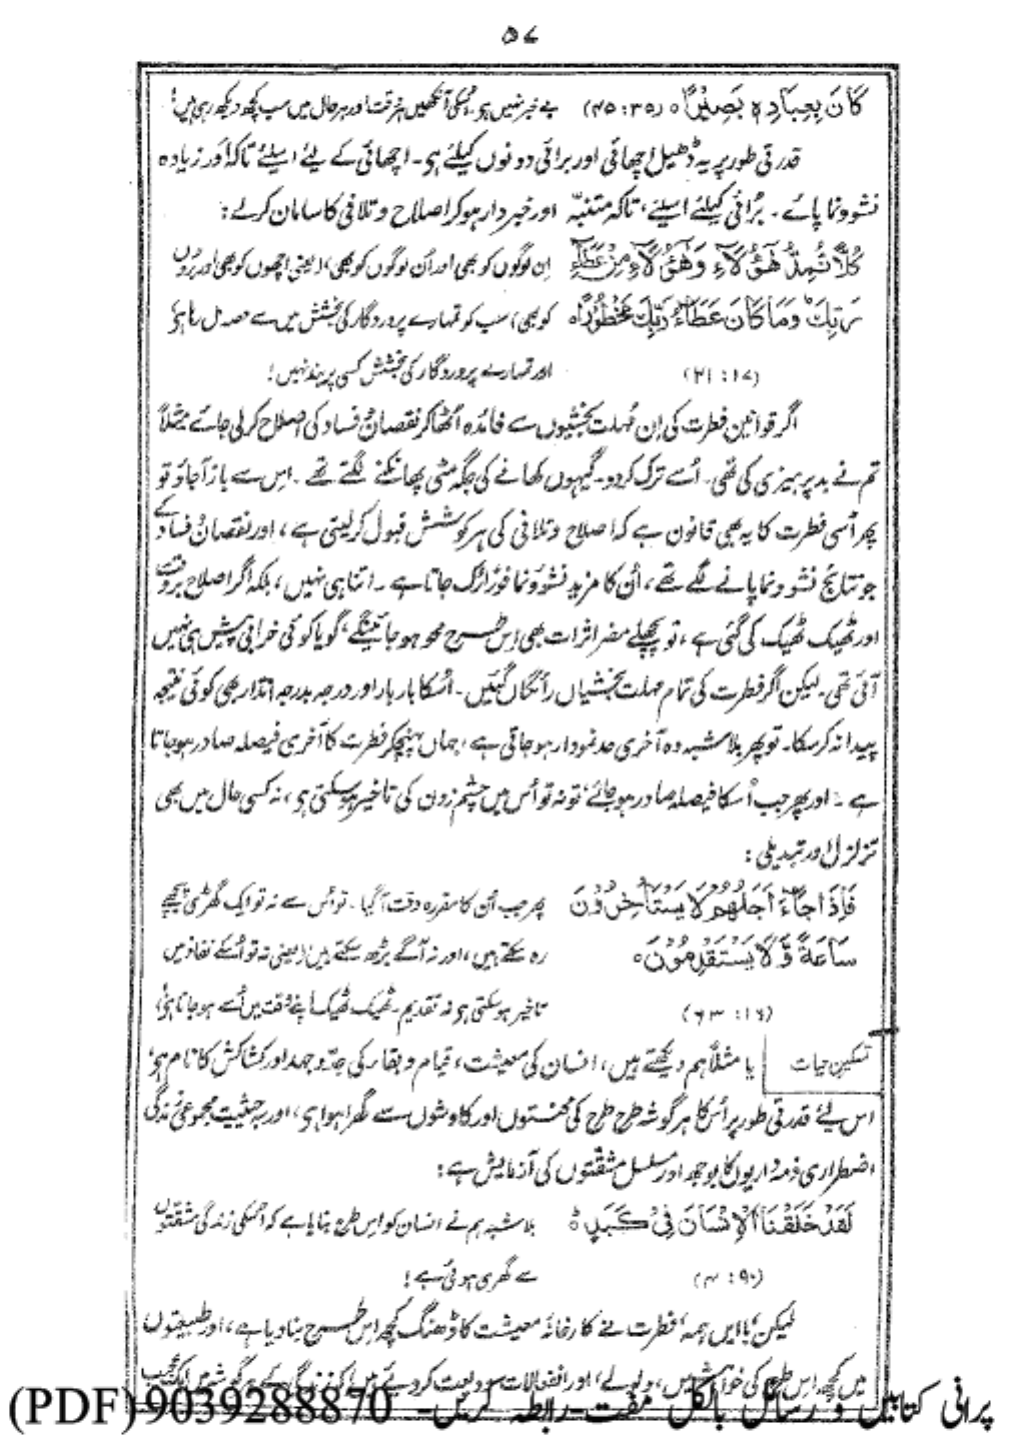 ۵۷
كَانَ بِعِبَادِهٖ بَصِيْرًا ۝ (۳۵:۴۵) بے خبر نہیں ہو۔ اُسکی آنکھیں ہر وقت اور ہر حال میں سب کچھ دیکھ رہی ہیں!
قدرتی طور پر یہ ڈھیل اچھائی اور برائی دونوں کیلئے ہی۔ اچھائی کے لیے اسلئے تاکہ اَور زیادہ
نشوونما پائے۔ بُرائی کیلئے اسلئے، تاکہ متنبہّ اور خبردار ہوکر اصلاح و تلافی کا سامان کرلے:
كُلًّا نُّمِدُّ هٰٓؤُلَآءِ وَهٰٓؤُلَآءِ مِنْ عَطَآءِ اِن لوگوں کو بھی اور اُن لوگوں کو بھی، (یعنی اچھوں کو بھی اور بروں
رَبِّكَ ؕ وَمَا كَانَ عَطَآءُ رَبِّكَ مَحْظُوْرًا ۝ کو بھی) سب کو تمہارے پروردگار کی بخشش میں سے حصہ مل رہا ہی
(۲۱:۱۷) اور تمہارے پروردگار کی بخشش کسی پر بند نہیں!
اگر قوانین فطرت کی اِن مُہلت بخشیوں سے فائدہ اُٹھا کر نقصان و فساد کی اصلاح کرلی جائے مثلاً
تم نے بدپرہیزی کی تھی۔ اُسے ترک کردو۔ گیہوں کھانے کی جگہ مٹی پھانکنے لگے تھے۔ اِس سے باز آجاؤ تو
پھر اُسی فطرت کا یہ بھی قانون ہے کہ اصلاح و تلافی کی ہر کوشش قبول کرلیتی ہے، اور نقصان و فساد کے
جو نتائج نشو ونما پانے لگے تھے، اُن کا مزید نشوونما فوراً رُک جاتا ہے۔ اتنا ہی نہیں، بلکہ اگر اصلاح بروقت
اور ٹھیک ٹھیک کی گئی ہے، تو پچھلے مضر اثرات بھی اِس طرح محو ہو جائینگے، گویا کوئی خرابی پیش ہی نہیں
آئی تھی۔ لیکن اگر فطرت کی تمام مہلت بخشیاں رائگاں گئیں۔ اُسکا بار بار اور درجہ بدرجہ انذار بھی کوئی نتیجہ
پیدا نہ کرسکا۔ تو پھر بلا شبہ وہ آخری حد نمودار ہو جاتی ہے، جہاں پہنچکر فطرت کا آخری فیصلہ صادر ہو جاتا
ہے۔ اور پھر جب اُسکا فیصلہ صادر ہو جائے، تو نہ تو اُس میں چشم زدن کی تاخیر ہو سکتی ہی، نہ کسی حال میں بھی
تزلزل اور تبدیلی:
فَاِذَا جَآءَ اَجَلُهُمْ لَا يَسْتَاْخِرُوْنَ پھر جب اُن کا مقررہ وقت آگیا۔ تو اُس سے نہ تو ایک گھڑی پیچھے
سَاعَةً وَّلَا يَسْتَقْدِمُوْنَ ۝ رہ سکتے ہیں، اور نہ آگے بڑھ سکتے ہیں (یعنی نہ تو اُسکے نفاذ میں
(۶۳:۱۶) تاخیر ہو سکتی ہی نہ تقدیم۔ ٹھیک ٹھیک اپنے وقت میں اُسے ہو جانا ہی)
تسکین حیات
یا مثلاً ہم دیکھتے ہیں، انسان کی معیشت، قیام و بقار کی جدّوجہد اور کشاکش کا نام ہی
اس لیے قدرتی طور پر اُس کا ہر گوشہ طرح طرح کی محنتوں اور کاوشوں سے گھرا ہوا ہی، اور بہ حیثیت مجموعی زندگی
اضطراری ذمہ داریوں کا بوجھ اور مسلسل مشقّتوں کی آزمایش ہے:
لَقَدْ خَلَقْنَا الْاِنْسَانَ فِيْ كَبَدٍ ۝ بلا شبہ ہم نے انسان کو اِس طرح بنایا ہے کہ اُسکی زندگی مشقتوں
(۴:۹۰) سے گھری ہوئی ہے!
لیکن بااین ہمہ فطرت نے کارخانۂ معیشت کا ڈھنگ کچھ اِس طرح بنادیا ہے، اور طبیعتوں
میں کچھ اِس طرح کی خواہشیں، ولولے، اور انفعالات ودیعت کردیے ہیں، کہ زندگی کے ہر گوشہ میں ایک عجیب
پرانی کتابیں و رسائل بالکل مفت۔ رابطہ کریں۔ 9039288870 (PDF)